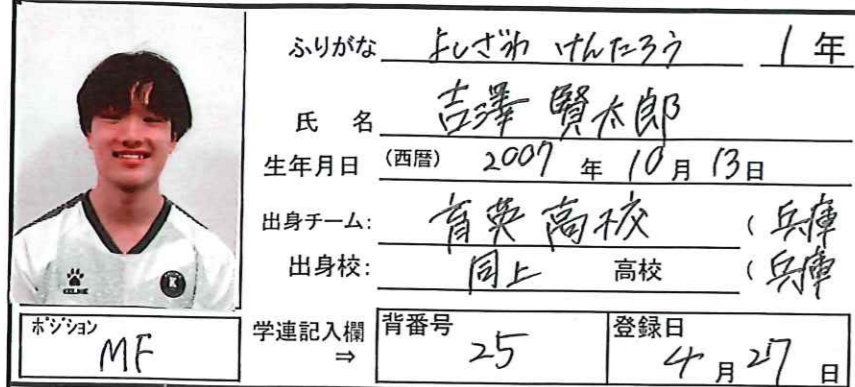 ふりがな よしざわ けんたろう 1 年
氏 名 吉澤 賢太郎
生年月日 (西暦) 2007 年 10 月 13 日
出身チーム: 育英高校 (兵庫
出身校: 同上 高校 (兵庫
KELME
ポジション
MF
学連記入欄
⇒
背番号
25
登録日
4 月 27 日